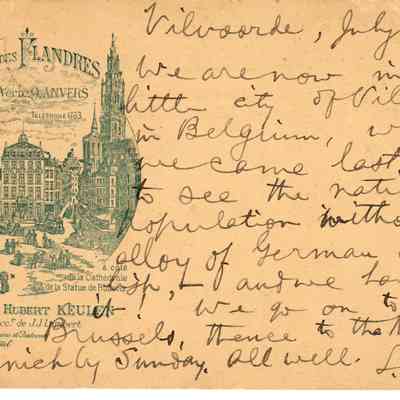 DES FLANDRES
Verte 9, ANVERS
TÉLÉPHONE 1763
À CÔTÉ
de la Cathédrale
& de la Statue de Rubens
HUBERT KEULER
Succr. de J.J. Lambert
Vilvoorde, July
We are now in
little city of Vil
in Belgium, w
we came last
to see the nati
population witho
alloy of German
sip, & and we ha
it. We go on to
Brussels, thence to the
nich by Sunday. All well.